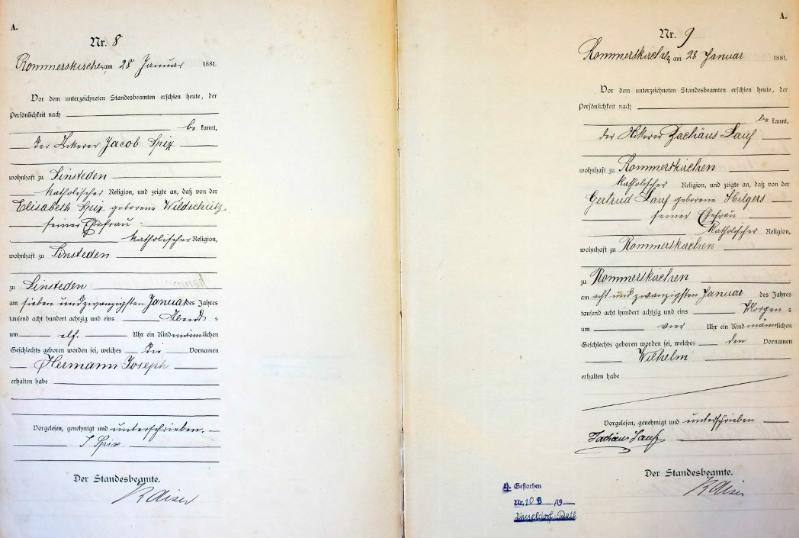 A.
Nr. 8
Rommerskirchen am 28 Januar 1881.
Vor dem unterzeichneten Standesbeamten erschien heute, der
Persönlichkeit nach
be kannt,
der Ackerer Jacob Spix
wohnhaft zu Sinsteden
katholischer Religion, und zeigte an, daß von der
Elisabeth Spix geborene Wildschütz
seiner Ehefrau
katholischer Religion,
wohnhaft zu Sinsteden
zu Sinsteden
am sieben und zwanzigsten Januar des Jahres
tausend acht hundert achtzig und eins Abends
um elf Uhr ein Kind männlichen
Geschlechts geboren worden sei, welches die Vornamen
Hermann Joseph
erhalten habe
Vorgelesen, genehmigt und unterschrieben.
J Spix
Der Standesbeamte.
Kaiser
A.
Nr. 9
Rommerskirchen am 28 Januar 1881.
Vor dem unterzeichneten Standesbeamten erschien heute, der
Persönlichkeit nach
be kannt,
der Ackerer Zachäus Lauf
wohnhaft zu Rommerskirchen
katholischer Religion, und zeigte an, daß von der
Gertrud Lauf geborene Hilgers
seiner Ehefrau
katholischer Religion,
wohnhaft zu Rommerskirchen
zu Rommerskirchen
am acht und zwanzigsten Januar des Jahres
tausend acht hundert achtzig und eins Morgens
um vier Uhr ein Kind männlichen
Geschlechts geboren worden sei, welches den Vornamen
Wilhelm
erhalten habe
Vorgelesen, genehmigt und unterschrieben
Zachäus Lauf
Der Standesbeamte.
Kaiser
Gestorben
Nr.